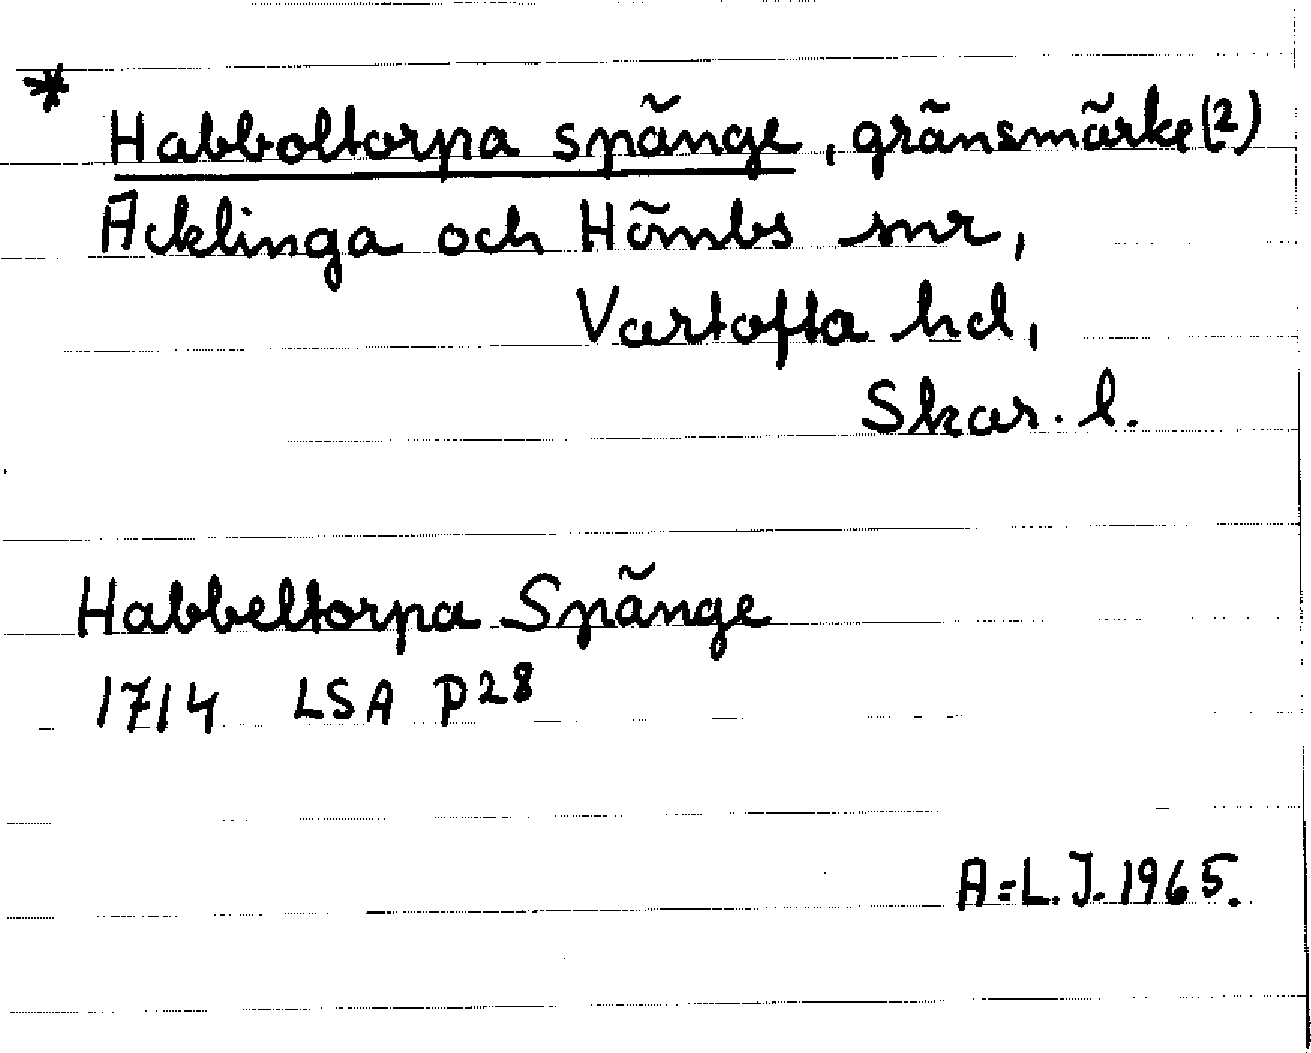 * Habboltorpa spänge, gränsmärke (2)
Äcklinga och Hömbs snr,
Vartofta hd,
Skar. l.
Habbeltorpa Spänge
1714 LSA P28
A-L. J. 1965.